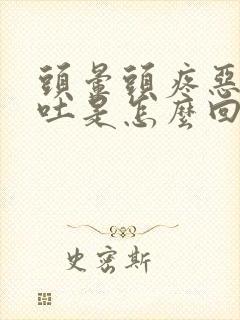 頭暈頭疼惡
吐是怎麼回
史密斯